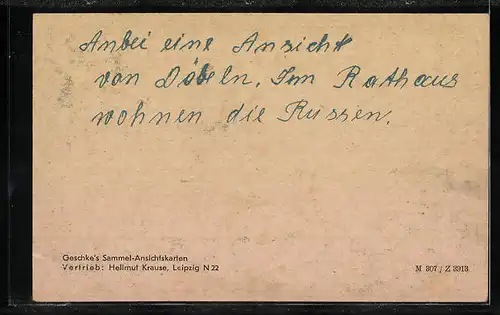 Anbei eine Ansicht
von Döbeln. Im Rathaus
wohnen die Russen.
Geschke's Sammel-Ansichtskarten
Vertrieb: Hellmut Krause, Leipzig N 22
M 307 / Z 3913